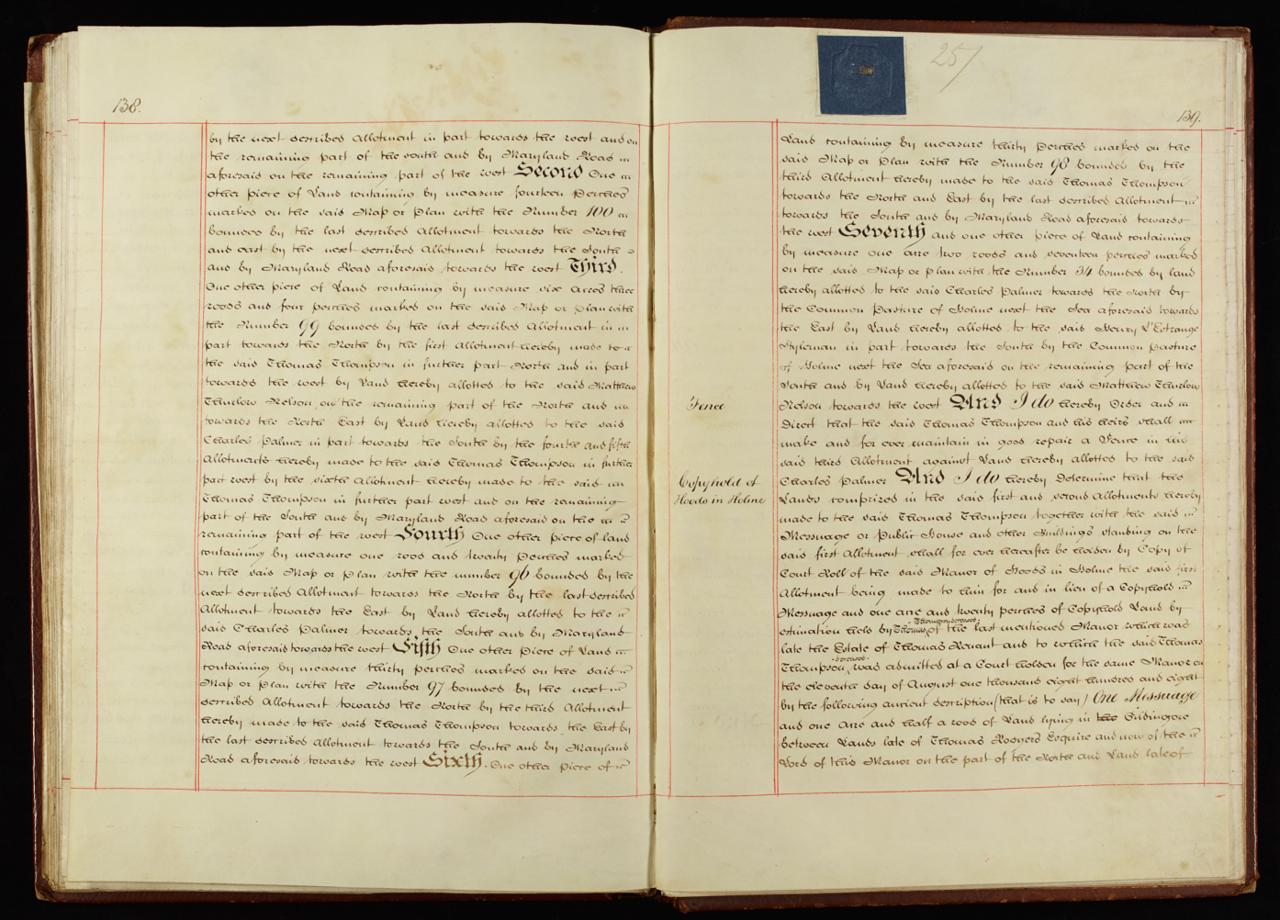 138.
by the next described Allotment in part towards the west and on
the remaining part of the south and by Maryland Road
aforesaid on the remaining part of the west Second One
other piece of Land containing by measure fourteen Perches
marked on the said Map or Plan with the Number 100
bounded by the last described Allotment towards the North
and east by the next described Allotment towards the South
and by Maryland Road aforesaid towards the west Third.
One other piece of Land containing by measure six Acres three
roods and four perches marked on the said Map or Plan with
the Number 99 bounded by the last described Allotment in
part towards the North by the first Allotment hereby made to
the said Thomas Thompson in further part North and in part
towards the west by Land hereby allotted to the said Matthew
Thurlow Nelson on the remaining part of the North and
towards the North East by Land hereby allotted to the said
Charles Palmer in part towards the South by the fourth and fifth
Allotments hereby made to the said Thomas Thompson in further
part west by the sixth Allotment hereby made to the said
Thomas Thompson in further part west and on the remaining
part of the South and by Maryland Road aforesaid on the
remaining part of the west Fourth One other piece of land
containing by measure one rood and twenty Perches marked
on the said Map or Plan with the number 96 bounded by the
next described Allotment towards the North by the last described
Allotment towards the East by Land hereby allotted to the
said Charles Palmer towards the South and by Maryland
Road aforesaid towards the west Fifth One other Piece of Land
containing by measure thirty Perches marked on the said
Map or Plan with the Number 97 bounded by the next
described Allotment towards the North by the third Allotment
hereby made to the said Thomas Thompson towards the East by
the last described Allotment towards the South and by Maryland
Road aforesaid towards the west Sixth. One other Piece of
257
139.
Land containing by measure thirty Perches marked on the
said Map or Plan with the Number 98 bounded by the
third Allotment hereby made to the said Thomas Thompson
towards the North and East by the last described Allotment
towards the South and by Maryland Road aforesaid towards
the west Seventh and one other piece of Land containing
by measure one acre two roods and seventeen perches marked
on the said Map or Plan with the Number 34 bounded by land
hereby allotted to the said Charles Palmer towards the North by
the Common Pasture of Holme next the Sea aforesaid towards
the East by Land hereby allotted to the said Henry L'Estrange
Styleman in part towards the South by the Common Pasture
of Holme next the Sea aforesaid on the remaining part of the
South and by Land hereby allotted to the said Matthew Thurlow
Nelson towards the west And I do hereby Order and
Fence
Direct that the said Thomas Thompson and his heirs shall
make and for ever maintain in good repair a Fence in his
said third Allotment against Land hereby allotted to the said
Charles Palmer And I do hereby Determine that the
Copyhold of
Hoods in Holme
Lands comprized in the said first and second Allotments hereby
made to the said Thomas Thompson together with the said
Messuage or Public House and other Buildings standing on the
said first Allotment shall for ever hereafter be holden by Copy of
Court Roll of the said Manor of Hoods in Holme the said first
Allotment being made to him for and in lieu of a Copyhold
Messuage and one acre and twenty perches of Copyhold Land by
estimation held by Thomas Thompson of the last mentioned Manor which was
late the Estate of Thomas and to which the said Thomas
Thompson was admitted at a Court holden for the same Manor on
the eleventh day of August one thousand eight hundred and eight
by the following ancient description (that is to say) One Messuage
and one Acre and half a rood of Land lying in
between Lands late of Thomas Rogers Esquire and now of the
Lord of this Manor on the part of the North and Land late of